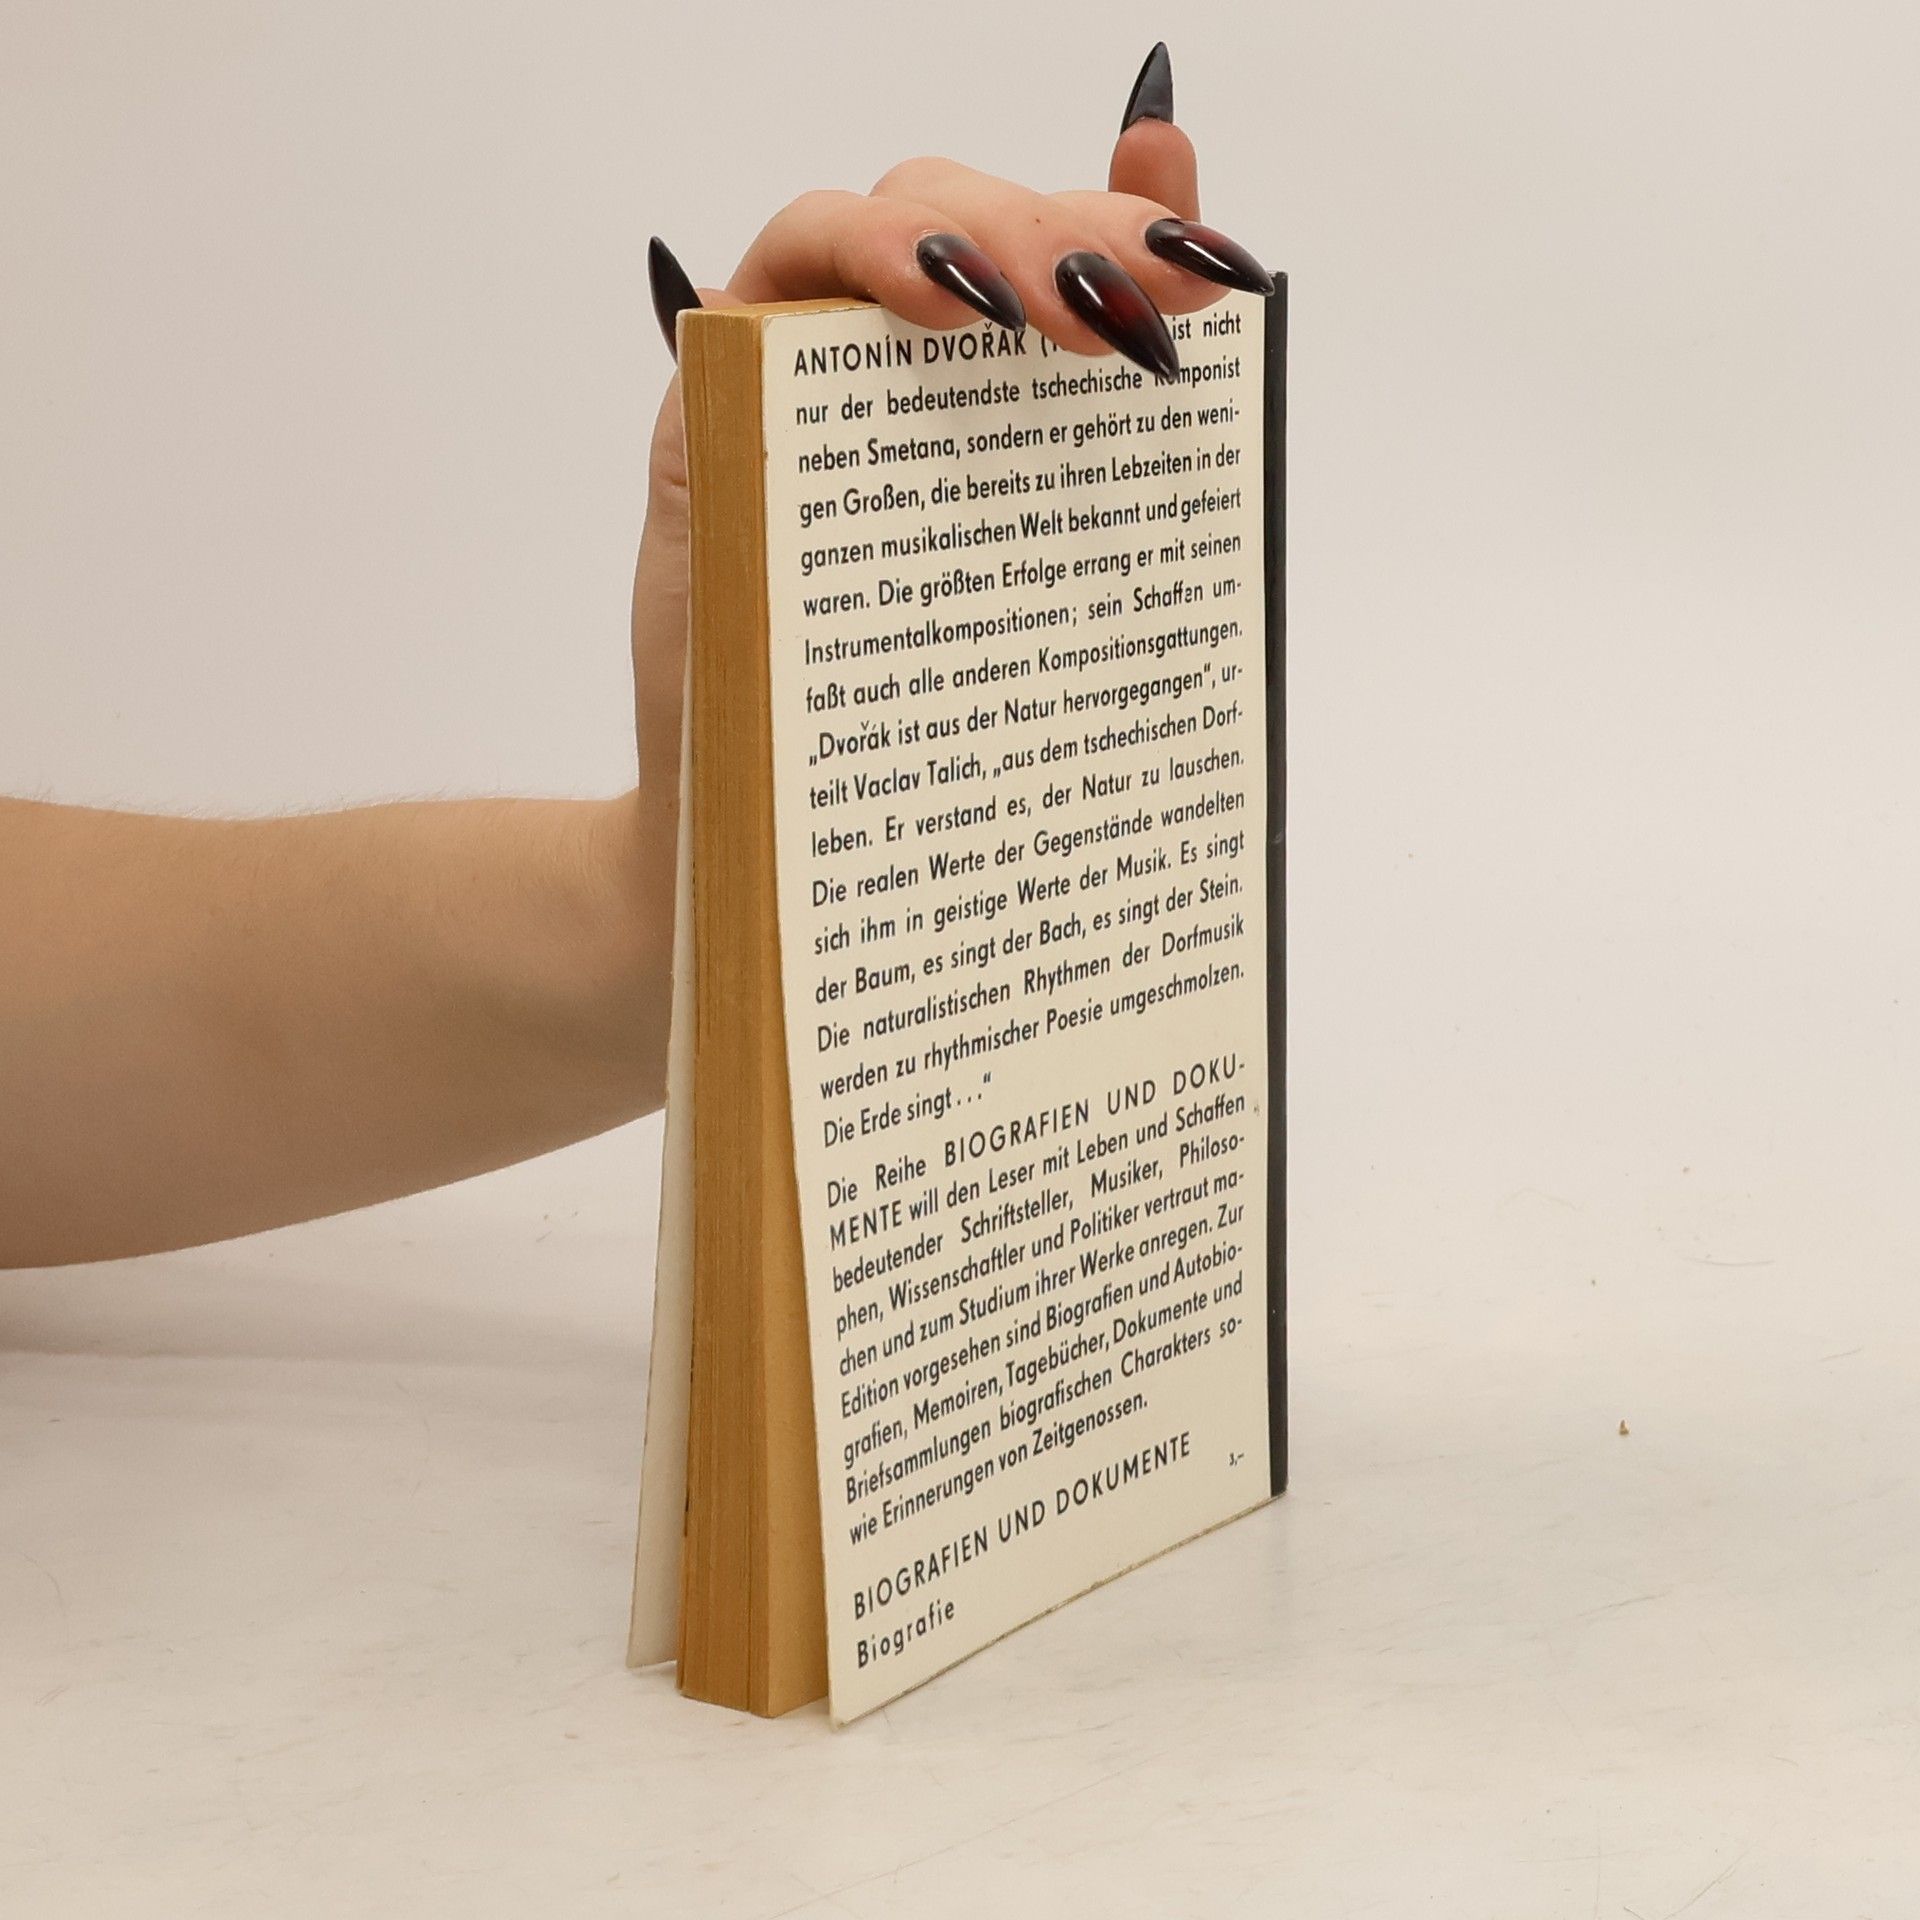 ANTONÍN DVOŘÁK ist nicht
nur der bedeutendste tschechische Komponist
neben Smetana, sondern er gehört zu den weni-
gen Großen, die bereits zu ihren Lebzeiten in der
ganzen musikalischen Welt bekannt und gefeiert
waren. Die größten Erfolge errang er mit seinen
Instrumentalkompositionen; sein Schaffen um-
faßt auch alle anderen Kompositionsgattungen.
„Dvořák ist aus der Natur hervorgegangen“, ur-
teilt Vaclav Talich, „aus dem tschechischen Dorf-
leben. Er verstand es, der Natur zu lauschen.
Die realen Werte der Gegenstände wandelten
sich ihm in geistige Werte der Musik. Es singt
der Baum, es singt der Bach, es singt der Stein.
Die naturalistischen Rhythmen der Dorfmusik
werden zu rhythmischer Poesie umgeschmolzen.
Die Erde singt . . .“
Die Reihe BIOGRAFIEN UND DOKU-
MENTE will den Leser mit Leben und Schaffen
bedeutender Schriftsteller, Musiker, Philoso-
phen, Wissenschaftler und Politiker vertraut ma-
chen und zum Studium ihrer Werke anregen. Zur
Edition vorgesehen sind Biografien und Autobio-
grafien, Memoiren, Tagebücher, Dokumente und
Briefsammlungen biografischen Charakters so-
wie Erinnerungen von Zeitgenossen.
BIOGRAFIEN UND DOKUMENTE
3,–
Biografie